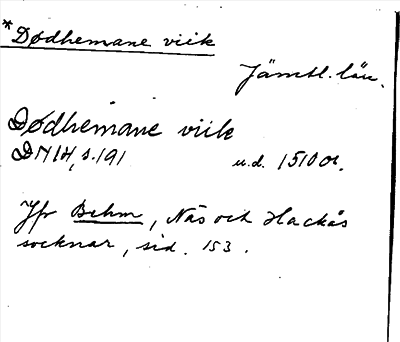 *Dødhemane viik
Jämtl. län.
Dødhemane viik
DNIH, s. 191 u.d. 1510 
Jfr Behm, Näs och Hackås
socknar, sid. 153.